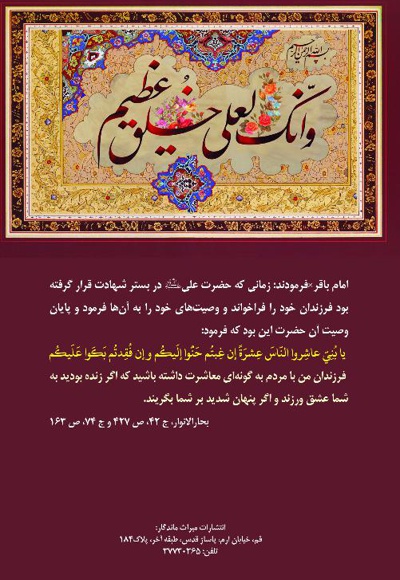 بسم الله الرحمن الرحیم
وَانّک لعلی خُلق عظیم
امام باقر فرمودند: زمانی که حضرت علی در بستر شهادت قرار گرفته
بود فرزندان خود را فراخواند و وصیت‌های خود را به آن‌ها فرمود و پایان
وصیت آن حضرت این بود که فرمود:
يا بُنَيَّ عاشِروا النّاسَ عِشرَةً إن غِبتُم حَنّوا إلَيكُم و إن فُقِدتُم بَكَوا عَلَيكُم
فرزندان من با مردم به گونه‌ای معاشرت داشته باشید که اگر زنده بودید به
شما عشق ورزند و اگر پنهان شدید بر شما بگریند.
بحارالانوار، ج ۴۲، ص ۴۲۷ و ج ۷۴، ص ۱۶۳
انتشارات میراث ماندگار:
قم، خیابان ارم، پاساژ قدس، طبقه آخر، پلاک۱۸۴
تلفن: ۳۷۷۳۰۳۶۵